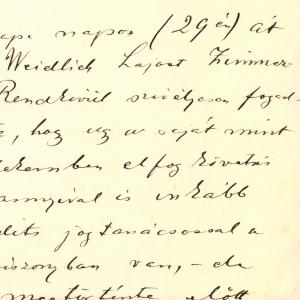 napon (29én) át
Weidlich Lajost Zimmer-
Rendkivül szivélyesen fogad-
hogy ugy a saját mint
elfogkövetés
annyival is inkább
jogtanácsossal a
viszonyban van, - de
megtörténte előtt